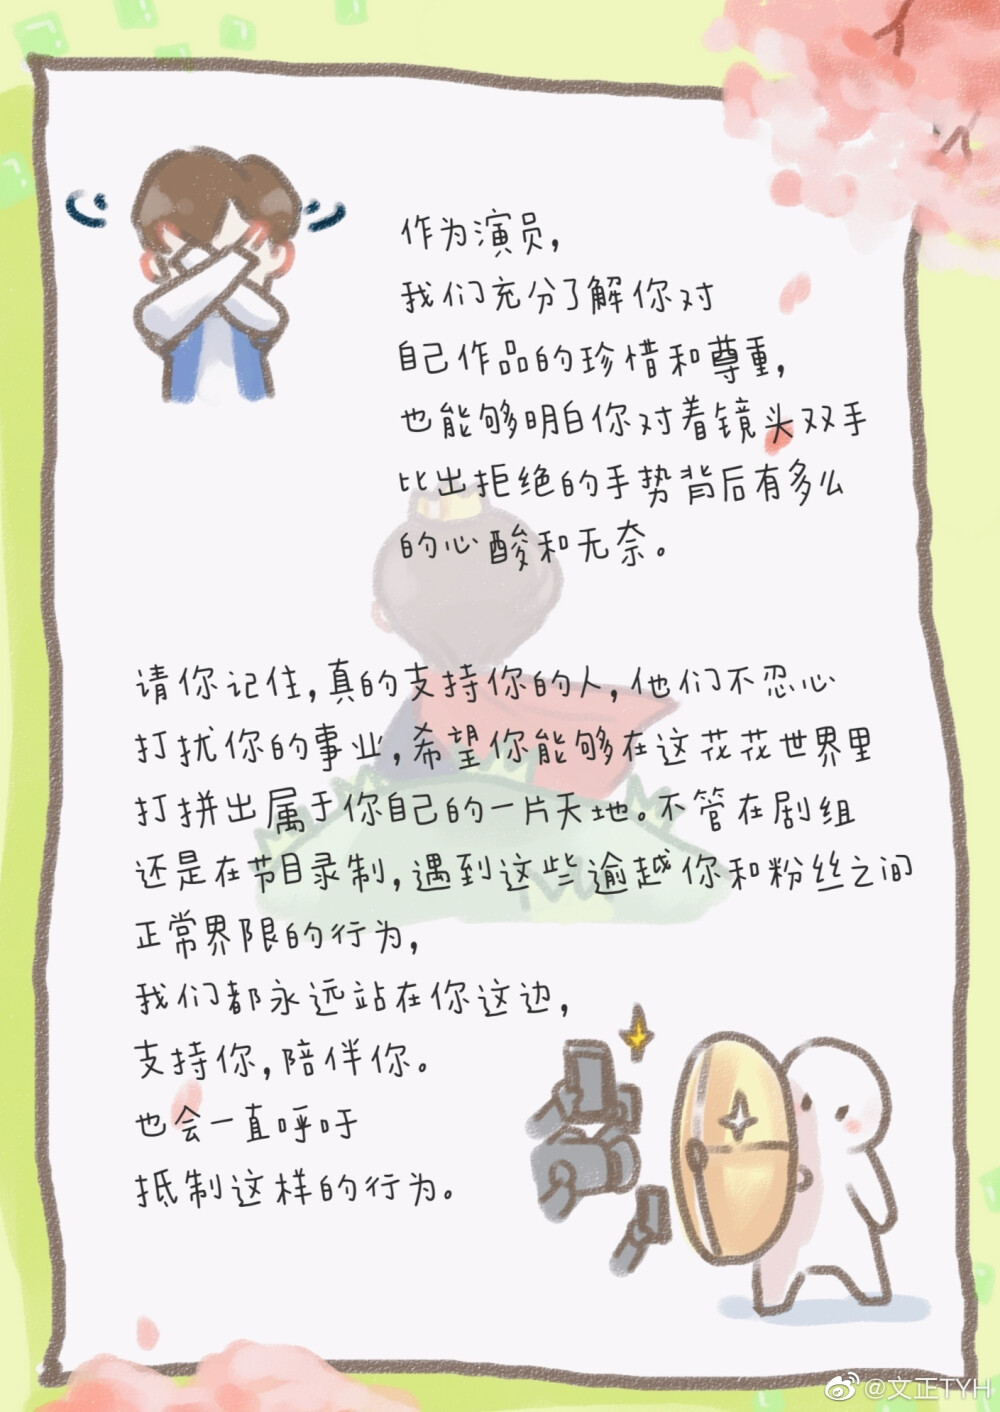 作为演员，
我们充分了解你对
自己作品的珍惜和尊重，
也能够明白你对着镜头双手
比出拒绝的手势背后有多么
的心酸和无奈。
请你记住，真的支持你的人，他们不忍心
打扰你的事业，希望你能够在这花花世界里
打拼出属于你自己的一片天地。不管在剧组
还是在节目录制，遇到这些逾越你和粉丝之间
正常界限的行为，
我们都永远站在你这边，
支持你，陪伴你。
也会一直呼吁
抵制这样的行为。
@文正TYH